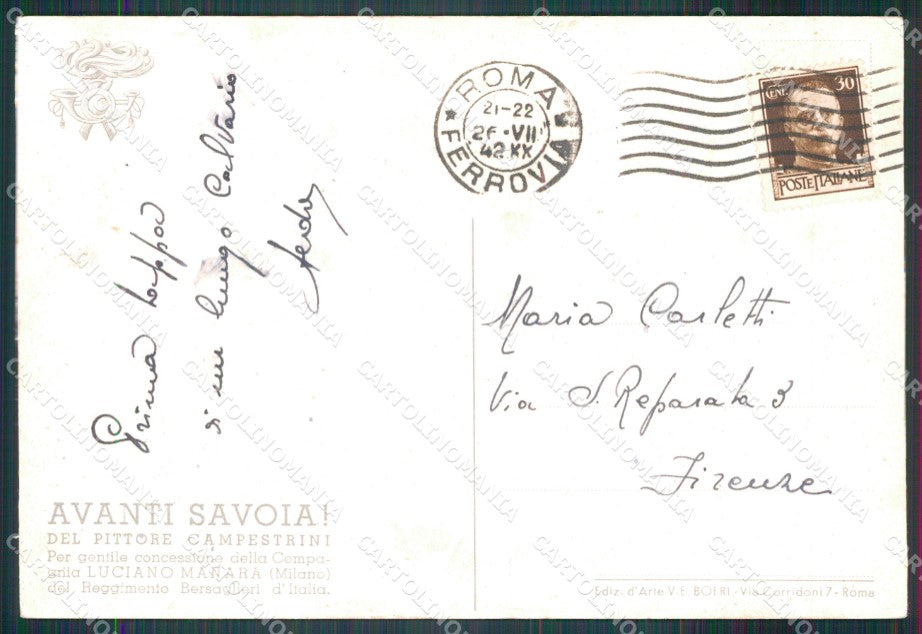 ROMA
21-22
26·VII
42 XX
FERROVIA
CENT. 30
POSTE ITALIANE
Prima tappa
di un lungo Calvario
Maria Carletti
Via S. Reparata 3
Firenze
AVANTI SAVOIA!
DEL PITTORE CAMPESTRINI
Per gentile concessione della Compa-
gnia LUCIANO MANARA (Milano)
del Reggimento Bersaglieri d'Italia.
Ediz. d'Arte V. E. BOERI - Via Corridoni 7 - Roma
CARTOLINOMANIA